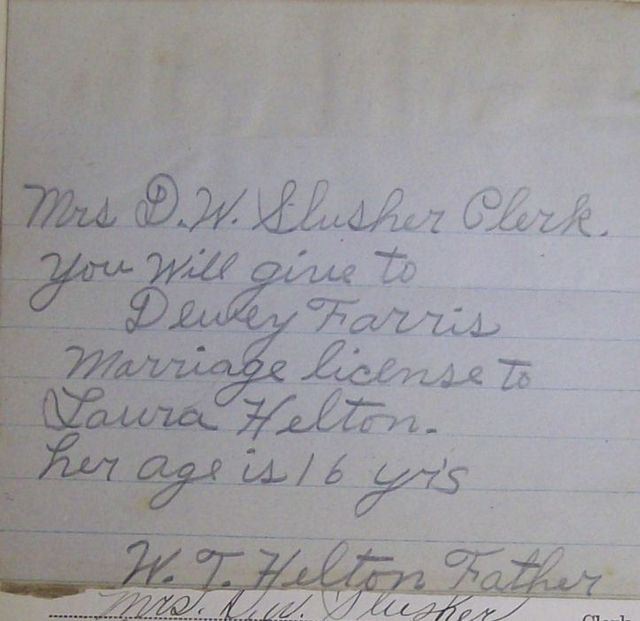 Mrs D.W. Slusher Clerk.
You Will give to
Dewey Farris
Marriage license to
Laura Helton.
her age is 16 yr's
W. T. Helton Father
Mrs. D.W. Slusher
Clerk